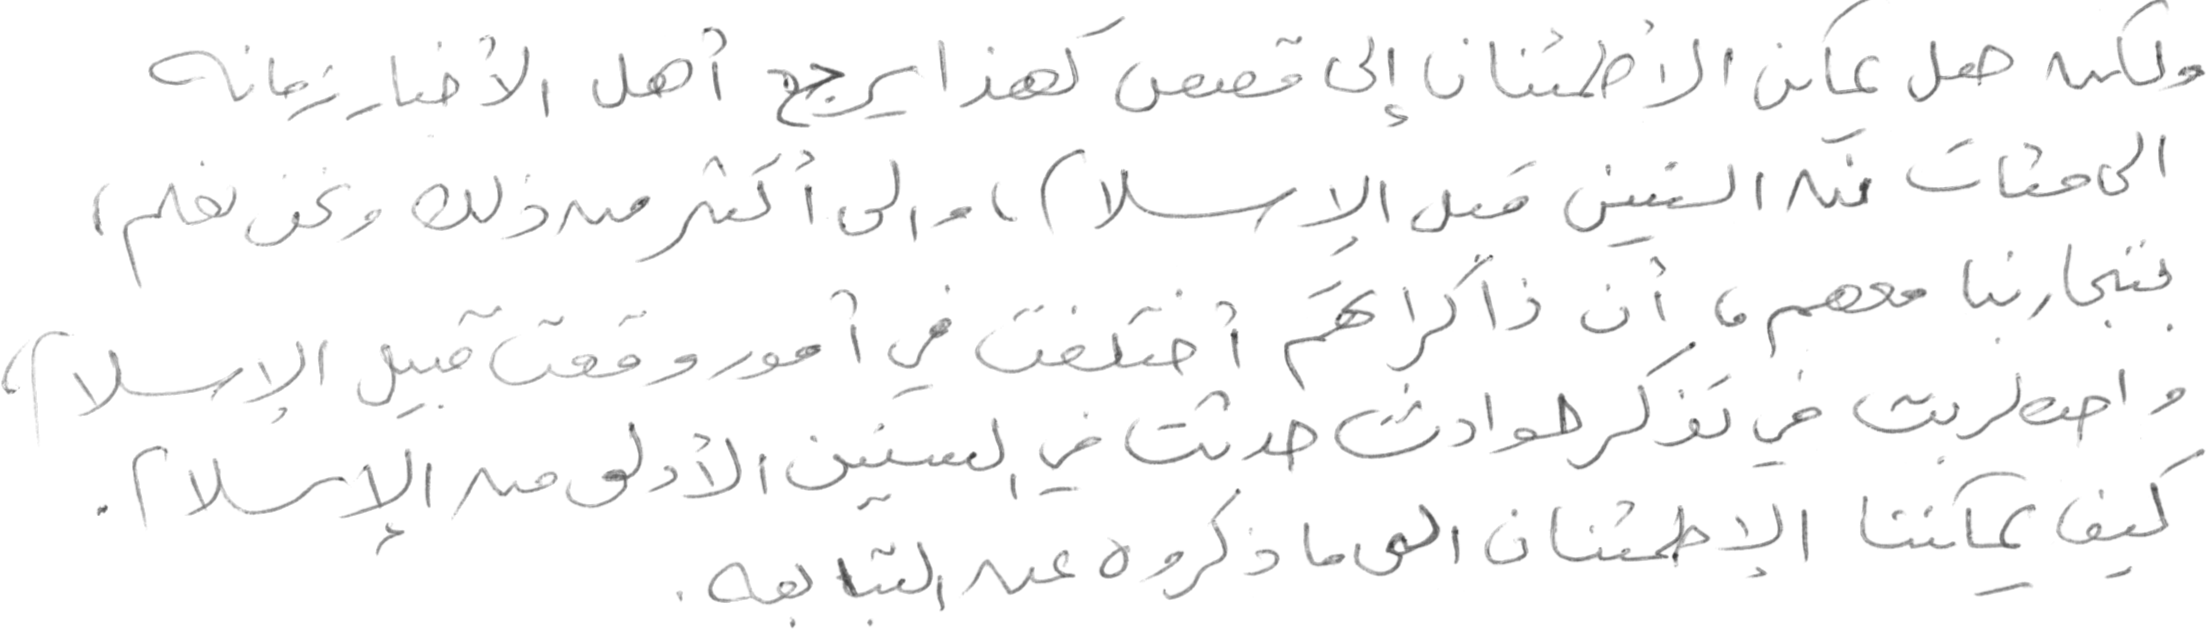 ولكن هل يمكن الأطمئنان إلى قصص كهذا يرجع أهل الأخبار زمانه
الى مئات من السنين قبل الإسلام، والى أكثر من ذلك ونحن نعلم،
بتجاربنا معهم، أن ذاكراتهم أختلفت في أمور وقعت قبيل الإسلام،
واضطربت في تذكر حوادث حدثت في السنين الأولى من الإسلام.
كيف يمكننا الإطمئنان الى ما ذكروه عن التبابعه.